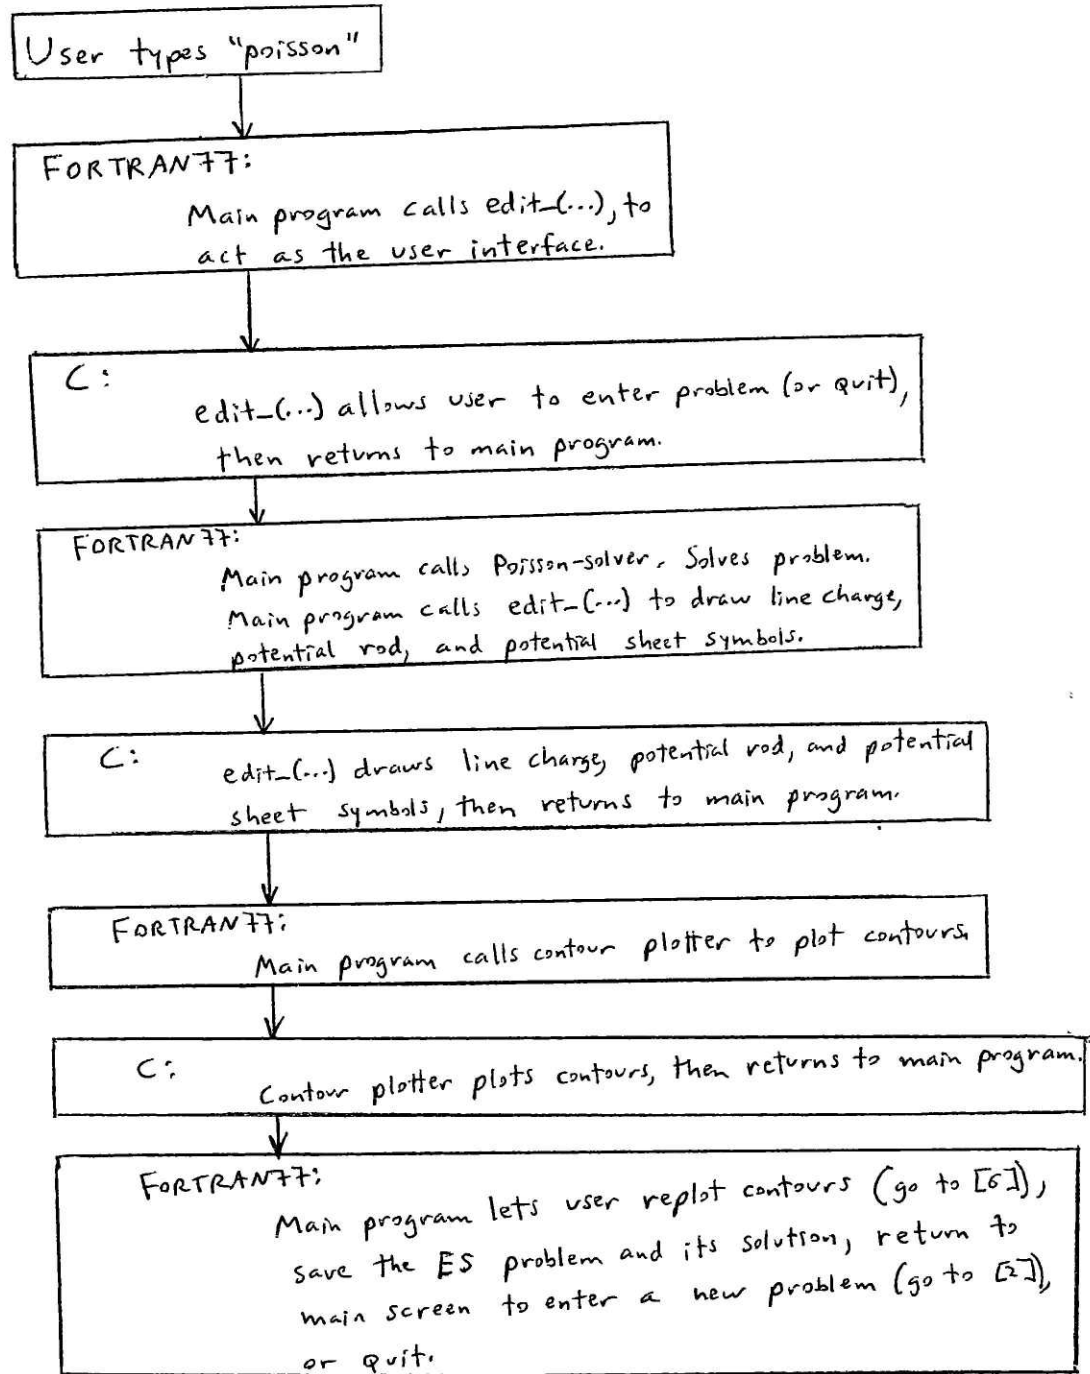 User types "poisson"
FORTRAN77:
Main program calls edit_(...), to
act as the user interface.
C:
edit_(...) allows user to enter problem (or quit),
then returns to main program.
FORTRAN77:
Main program calls Poisson-solver. Solves problem.
Main program calls edit_(...) to draw line charge,
potential rod, and potential sheet symbols.
C:
edit_(...) draws line charge, potential rod, and potential
sheet symbols, then returns to main program.
FORTRAN77:
Main program calls contour plotter to plot contours.
C:
Contour plotter plots contours, then returns to main program.
FORTRAN77:
Main program lets user replot contours (go to [6]),
save the ES problem and its solution, return to
main screen to enter a new problem (go to [2]),
or quit.